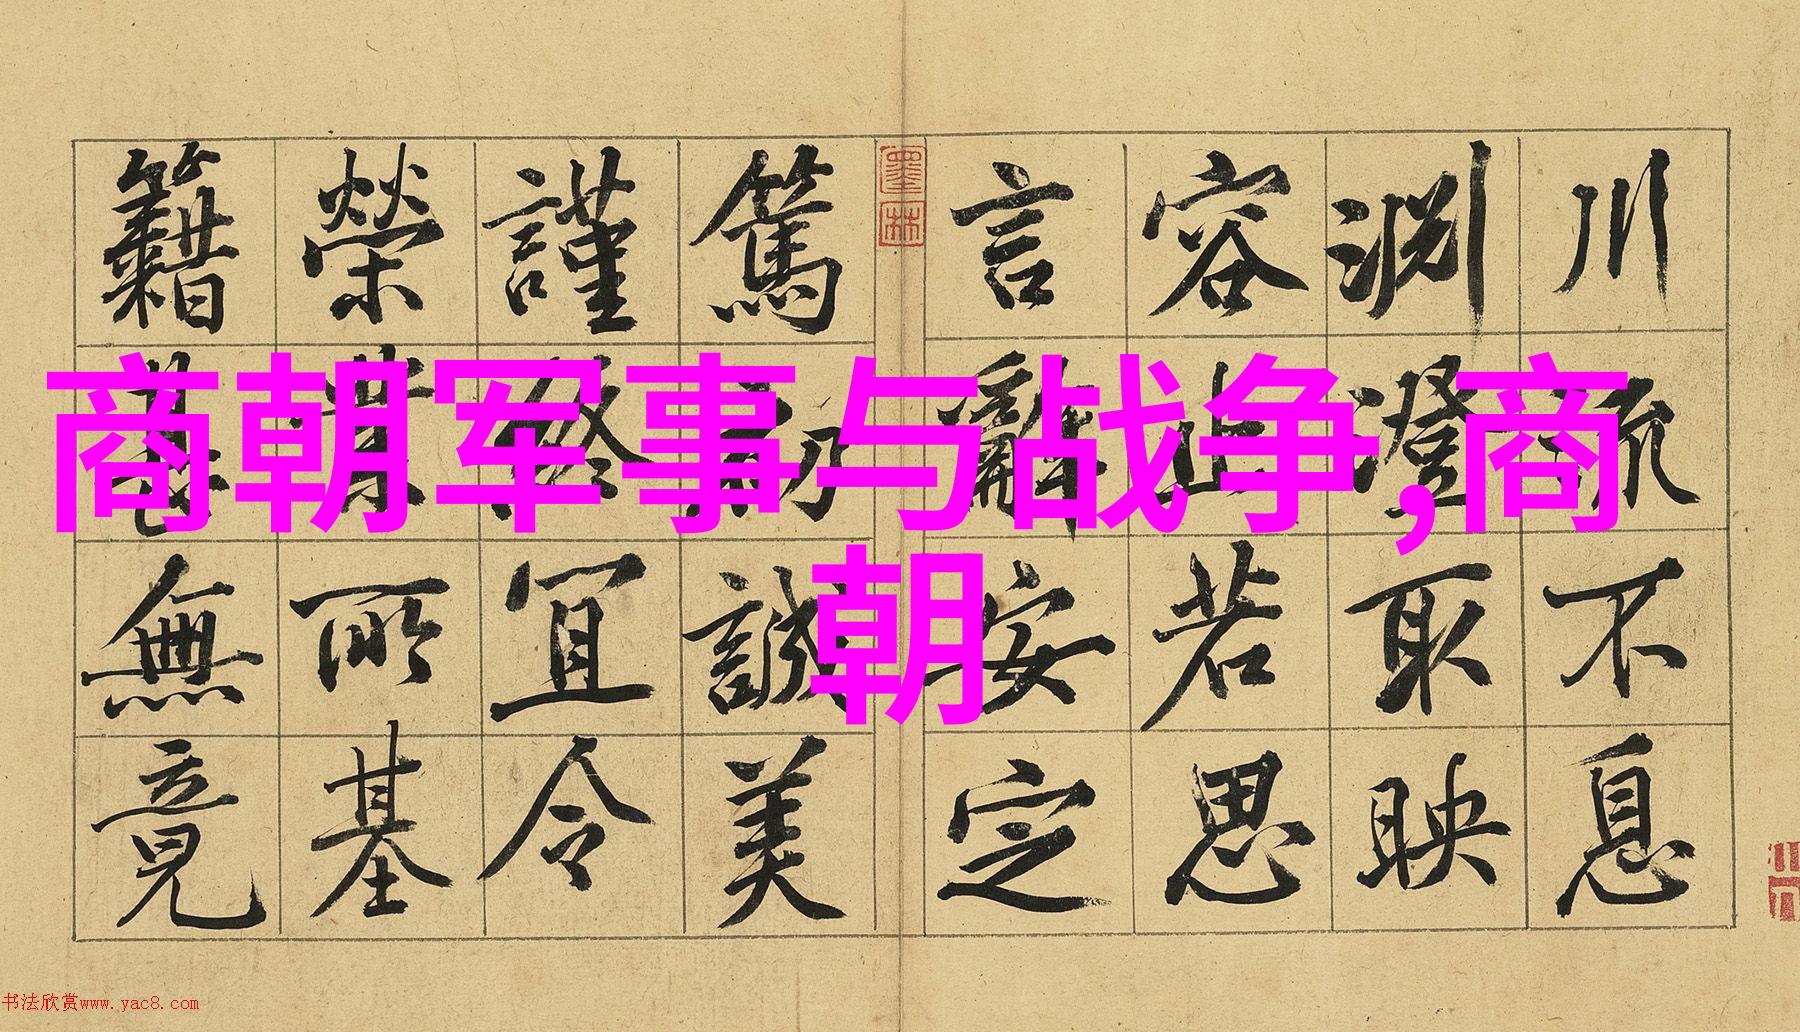 商朝军事与战争,商
朝
川流不息
淵澄取映
容止若思
言辭安定
墨林
篤初誠美
謹終宜令
榮業所基
籍甚無竟
书法欣赏www.yac8.com